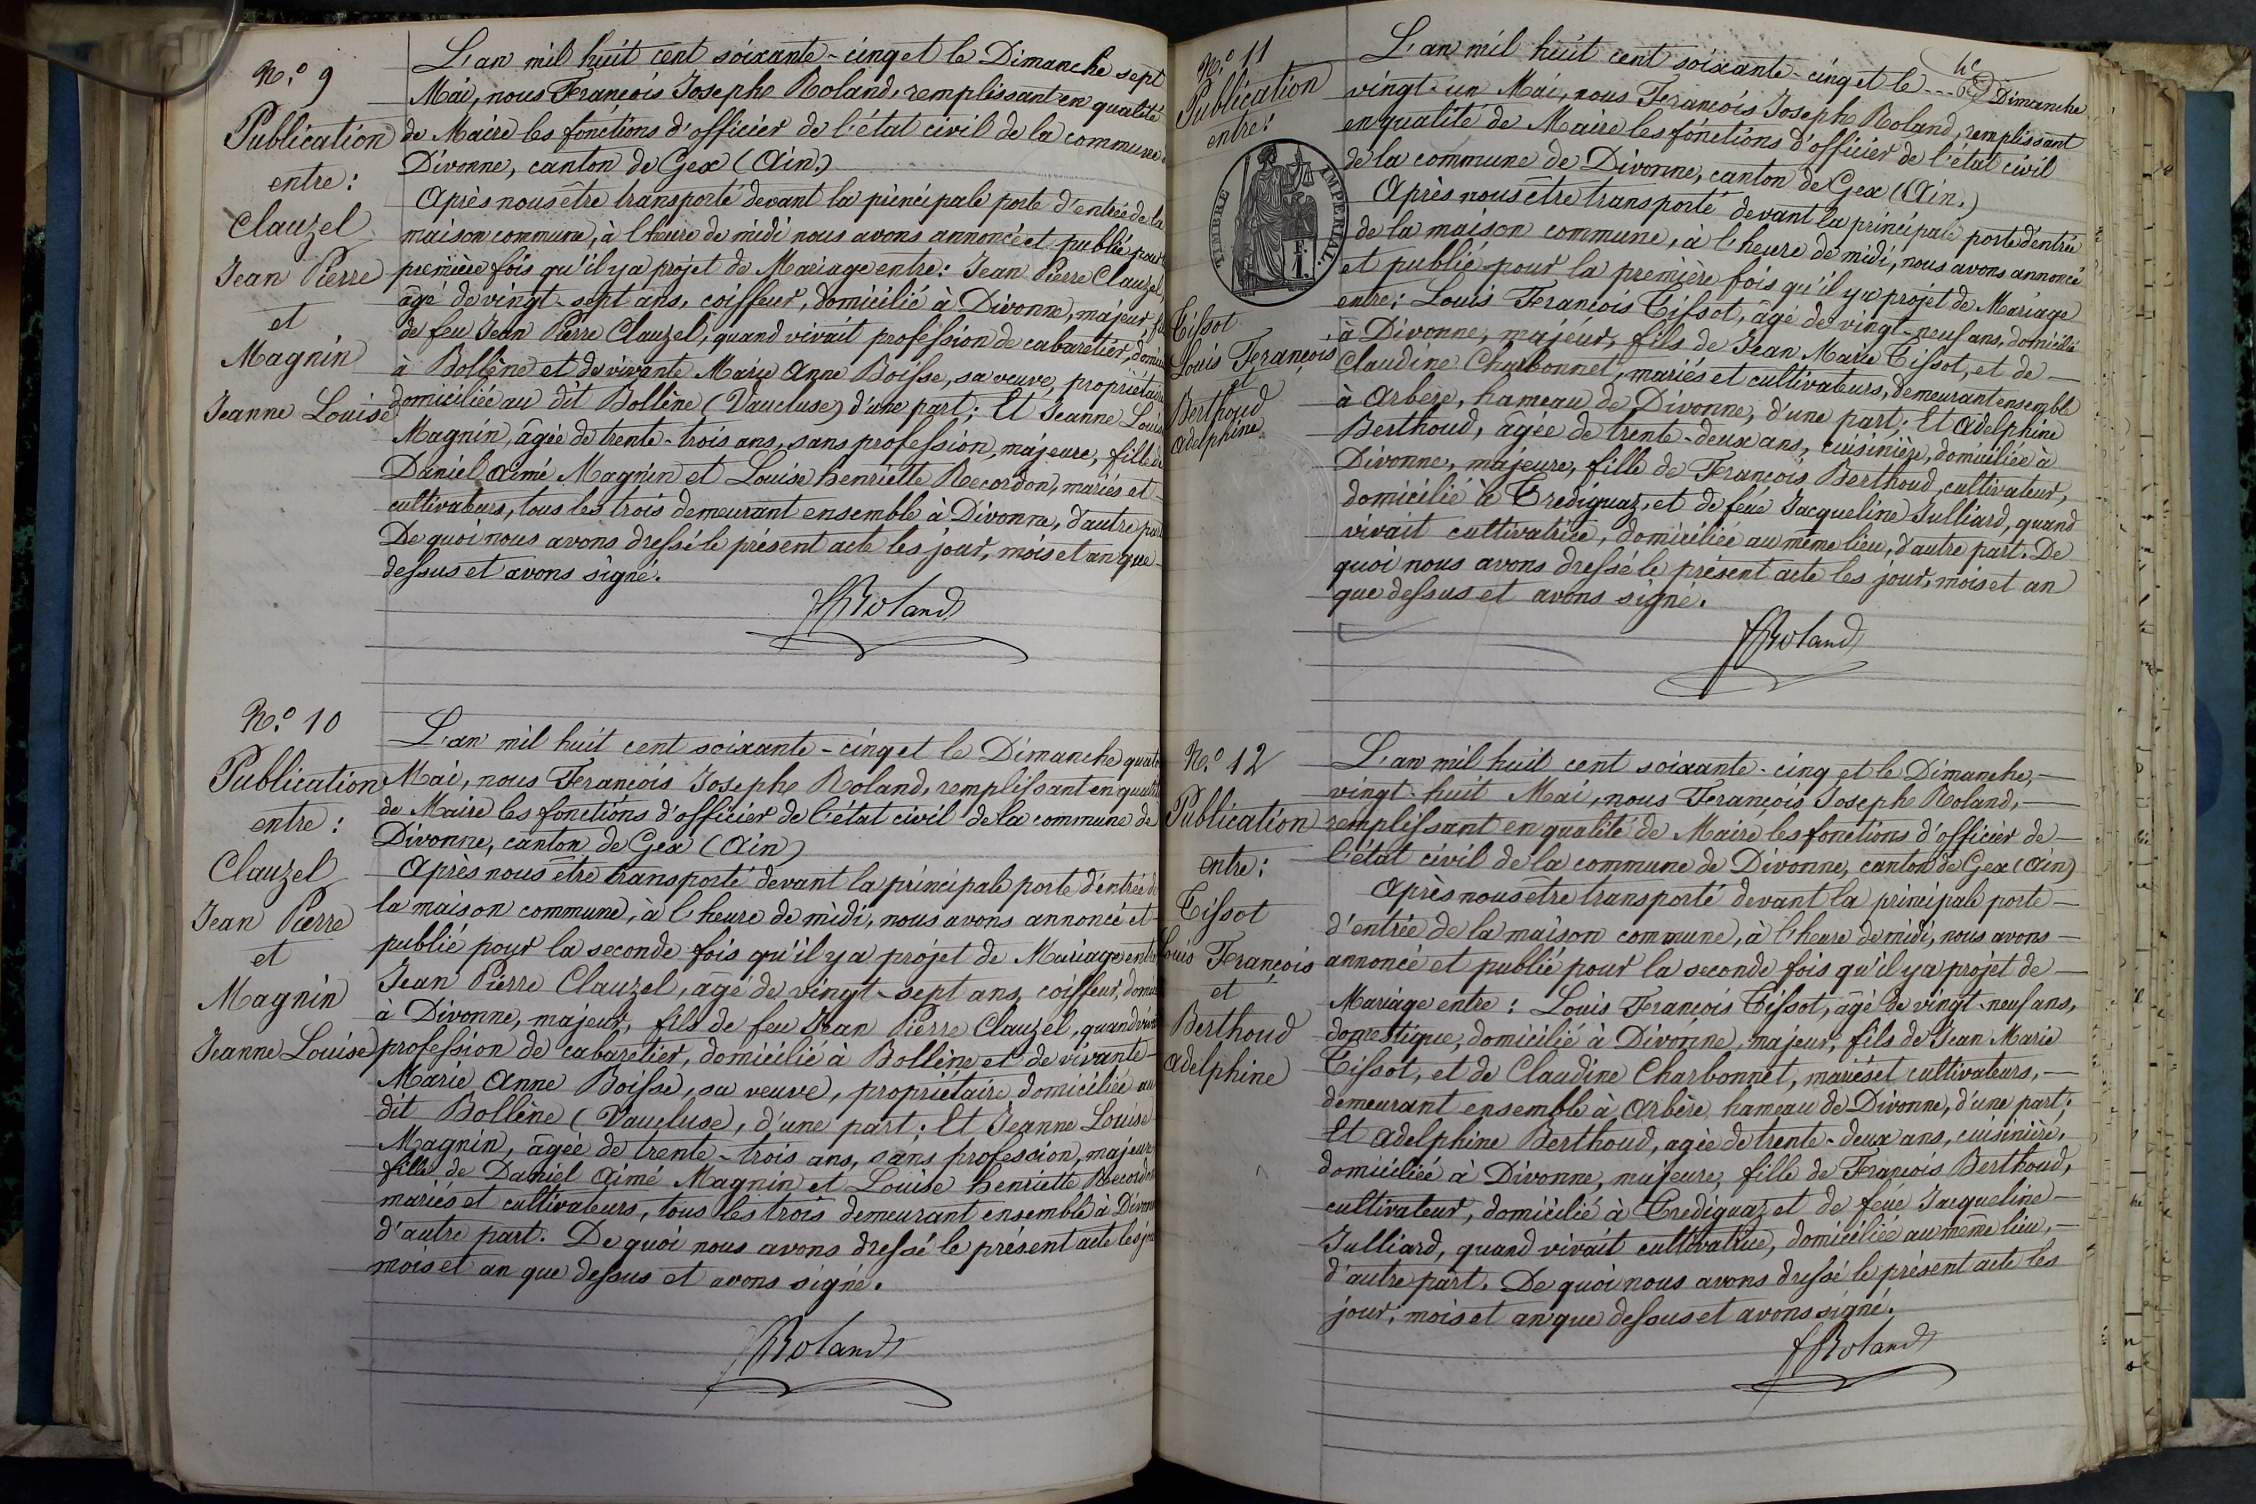 N.º 9
Publication
entre:
Clauzel
Jean Pierre
et
Magnin
Jeanne Louise
L'an mil huit cent soixante-cinq et le Dimanche sept
Mai, nous François Joseph Roland, remplissant en qualité
de Maire les fonctions d'officier de l'état civil de la commune
Divonne, canton de Gex (Ain.)
Après nous être transporté devant la principale porte d'entrée de la
maison commune, à l'heure de midi nous avons annoncé et publié pour
première fois qu'il y a projet de Mariage entre: Jean Pierre Clauzel,
âgé de vingt-sept ans, coiffeur, domicilié à Divonne, majeur,
de feu Jean Pierre Clauzel, quand vivait profession de cabaretier,
à Bollène et de vivante Marie Anne Boisse, sa veuve, propriétaire
domiciliée au dit Bollène (Vaucluse) d'une part; Et Jeanne Louise
Magnin, âgée de trente-trois ans, sans profession, majeure, fille de
Daniel Aimé Magnin et Louise henriette Recordon, mariés et
cultivateurs, tous les trois demeurant ensemble à Divonne, d'autre part
De quoi nous avons dressé le présent acte les jour, mois et an que
dessus et avons signé.
Roland
N.º 10
Publication
entre:
Clauzel
Jean Pierre
et
Magnin
Jeanne Louise
L'an mil huit cent soixante-cinq et le Dimanche
Mai, nous François Joseph Roland, remplissant en qualité
de Maire les fonctions d'officier de l'état civil de la commune de
Divonne, canton de Gex (Ain)
Après nous être transporté devant la principale porte d'entrée de
la maison commune, à l'heure de midi, nous avons annoncé et
publié pour la seconde fois qu'il y a projet de Mariage entre
Jean Pierre Clauzel, âgé de vingt-sept ans, coiffeur,
à Divonne, majeur, fils de feu Jean Pierre Clauzel, quand
profession de cabaretier, domicilié à Bollène et de vivante
Marie Anne Boisse, sa veuve, propriétaire domiciliée au
dit Bollène (Vaucluse), d'une part; Et Jeanne Louise
Magnin, âgée de trente-trois ans, sans profession, majeure
fille de Daniel Aimé Magnin et Louise henriette Recordon
mariés et cultivateurs, tous les trois demeurant ensemble à Divonne
d'autre part. De quoi nous avons dressé le présent acte les
mois et an que dessus et avons signé.
Roland
N.º 11
Publication
entre:
TIMBRE IMPERIAL.
Tissot
Louis François
et
Berthoud
Adelphine
L'an mil huit cent soixante-cinq et le Dimanche
vingt-un Mai, nous François Joseph Roland, remplissant
en qualité de Maire les fonctions d'officier de l'état civil
de la commune de Divonne, canton de Gex (Ain.)
Après nous être transporté devant la principale porte d'entrée
de la maison commune, à l'heure de midi, nous avons annoncé
et publié pour la première fois qu'il y a projet de Mariage
entre: Louis François Tissot, âgé de vingt-neuf ans, domicilié
à Divonne, majeur, fils de Jean Marie Tissot, et de
Claudine Charbonnet, mariés et cultivateurs, demeurant ensemble
à Arbère, hameau de Divonne, d'une part; Et Adelphine
Berthoud, âgée de trente-deux ans, cuisinière, domiciliée à
Divonne, majeure, fille de François Berthoud, cultivateur,
domicilié à Crediguaz, et de feue Jacqueline Julliard, quand
vivait cultivatrice, domiciliée au même lieu, d'autre part. De
quoi nous avons dressé le présent acte les jour, mois et an
que dessus et avons signé.
Roland
N.º 12
Publication
entre:
Tissot
Louis François
et
Berthoud
Adelphine
L'an mil huit cent soixante-cinq et le Dimanche,
vingt-huit Mai, nous François Joseph Roland,
remplissant en qualité de Maire les fonctions d'officier de
l'état civil de la commune de Divonne, canton de Gex (Ain)
Après nous être transporté devant la principale porte
d'entrée de la maison commune, à l'heure de midi, nous avons
annoncé et publié pour la seconde fois qu'il y a projet de
Mariage entre: Louis François Tissot, âgé de vingt-neuf ans,
domestique, domicilié à Divonne, majeur, fils de Jean Marie
Tissot, et de Claudine Charbonnet, mariés et cultivateurs,
demeurant ensemble à Arbère, hameau de Divonne, d'une part;
Et Adelphine Berthoud, agée de trente-deux ans, cuisinière,
domiciliée à Divonne, majeure, fille de François Berthoud,
cultivateur, domicilié à Crediguaz et de feue Jacqueline
Julliard, quand vivait cultivatrice, domiciliée au même lieu,
d'autre part. De quoi nous avons dressé le présent acte les
jour, mois et an que dessus et avons signé.
Roland